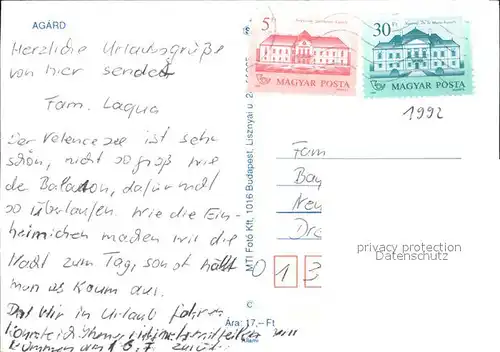 AGÁRD
Herzliche Urlaubsgrüße
von hier sendet
Fam. Laqua
Der Velencesee ist sehr
schön, nicht so groß wie
der Balaton, dafür nicht
so überlaufen. Wie die Ein-
heimischen machen wir die
Nacht zum Tag, sonst hält
man es kaum aus.
Daß wir in Urlaub fahren
konnte ich Ihnen nicht mehr
kommen am 16.7. zurück
C
Ára: 17,-Ft
MTI Fotó Kft, 1016 Budapest, Lisznyai u.
5 Ft
MAGYAR POSTA
30 Ft
MAGYAR POSTA
1992
Fam
Bay
Neu
Dre
0 1 3
privacy protection
Datenschutz